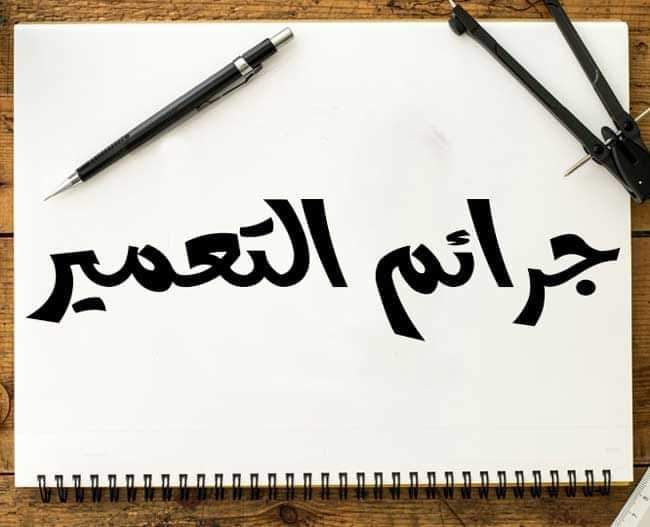 جرائم التعمير